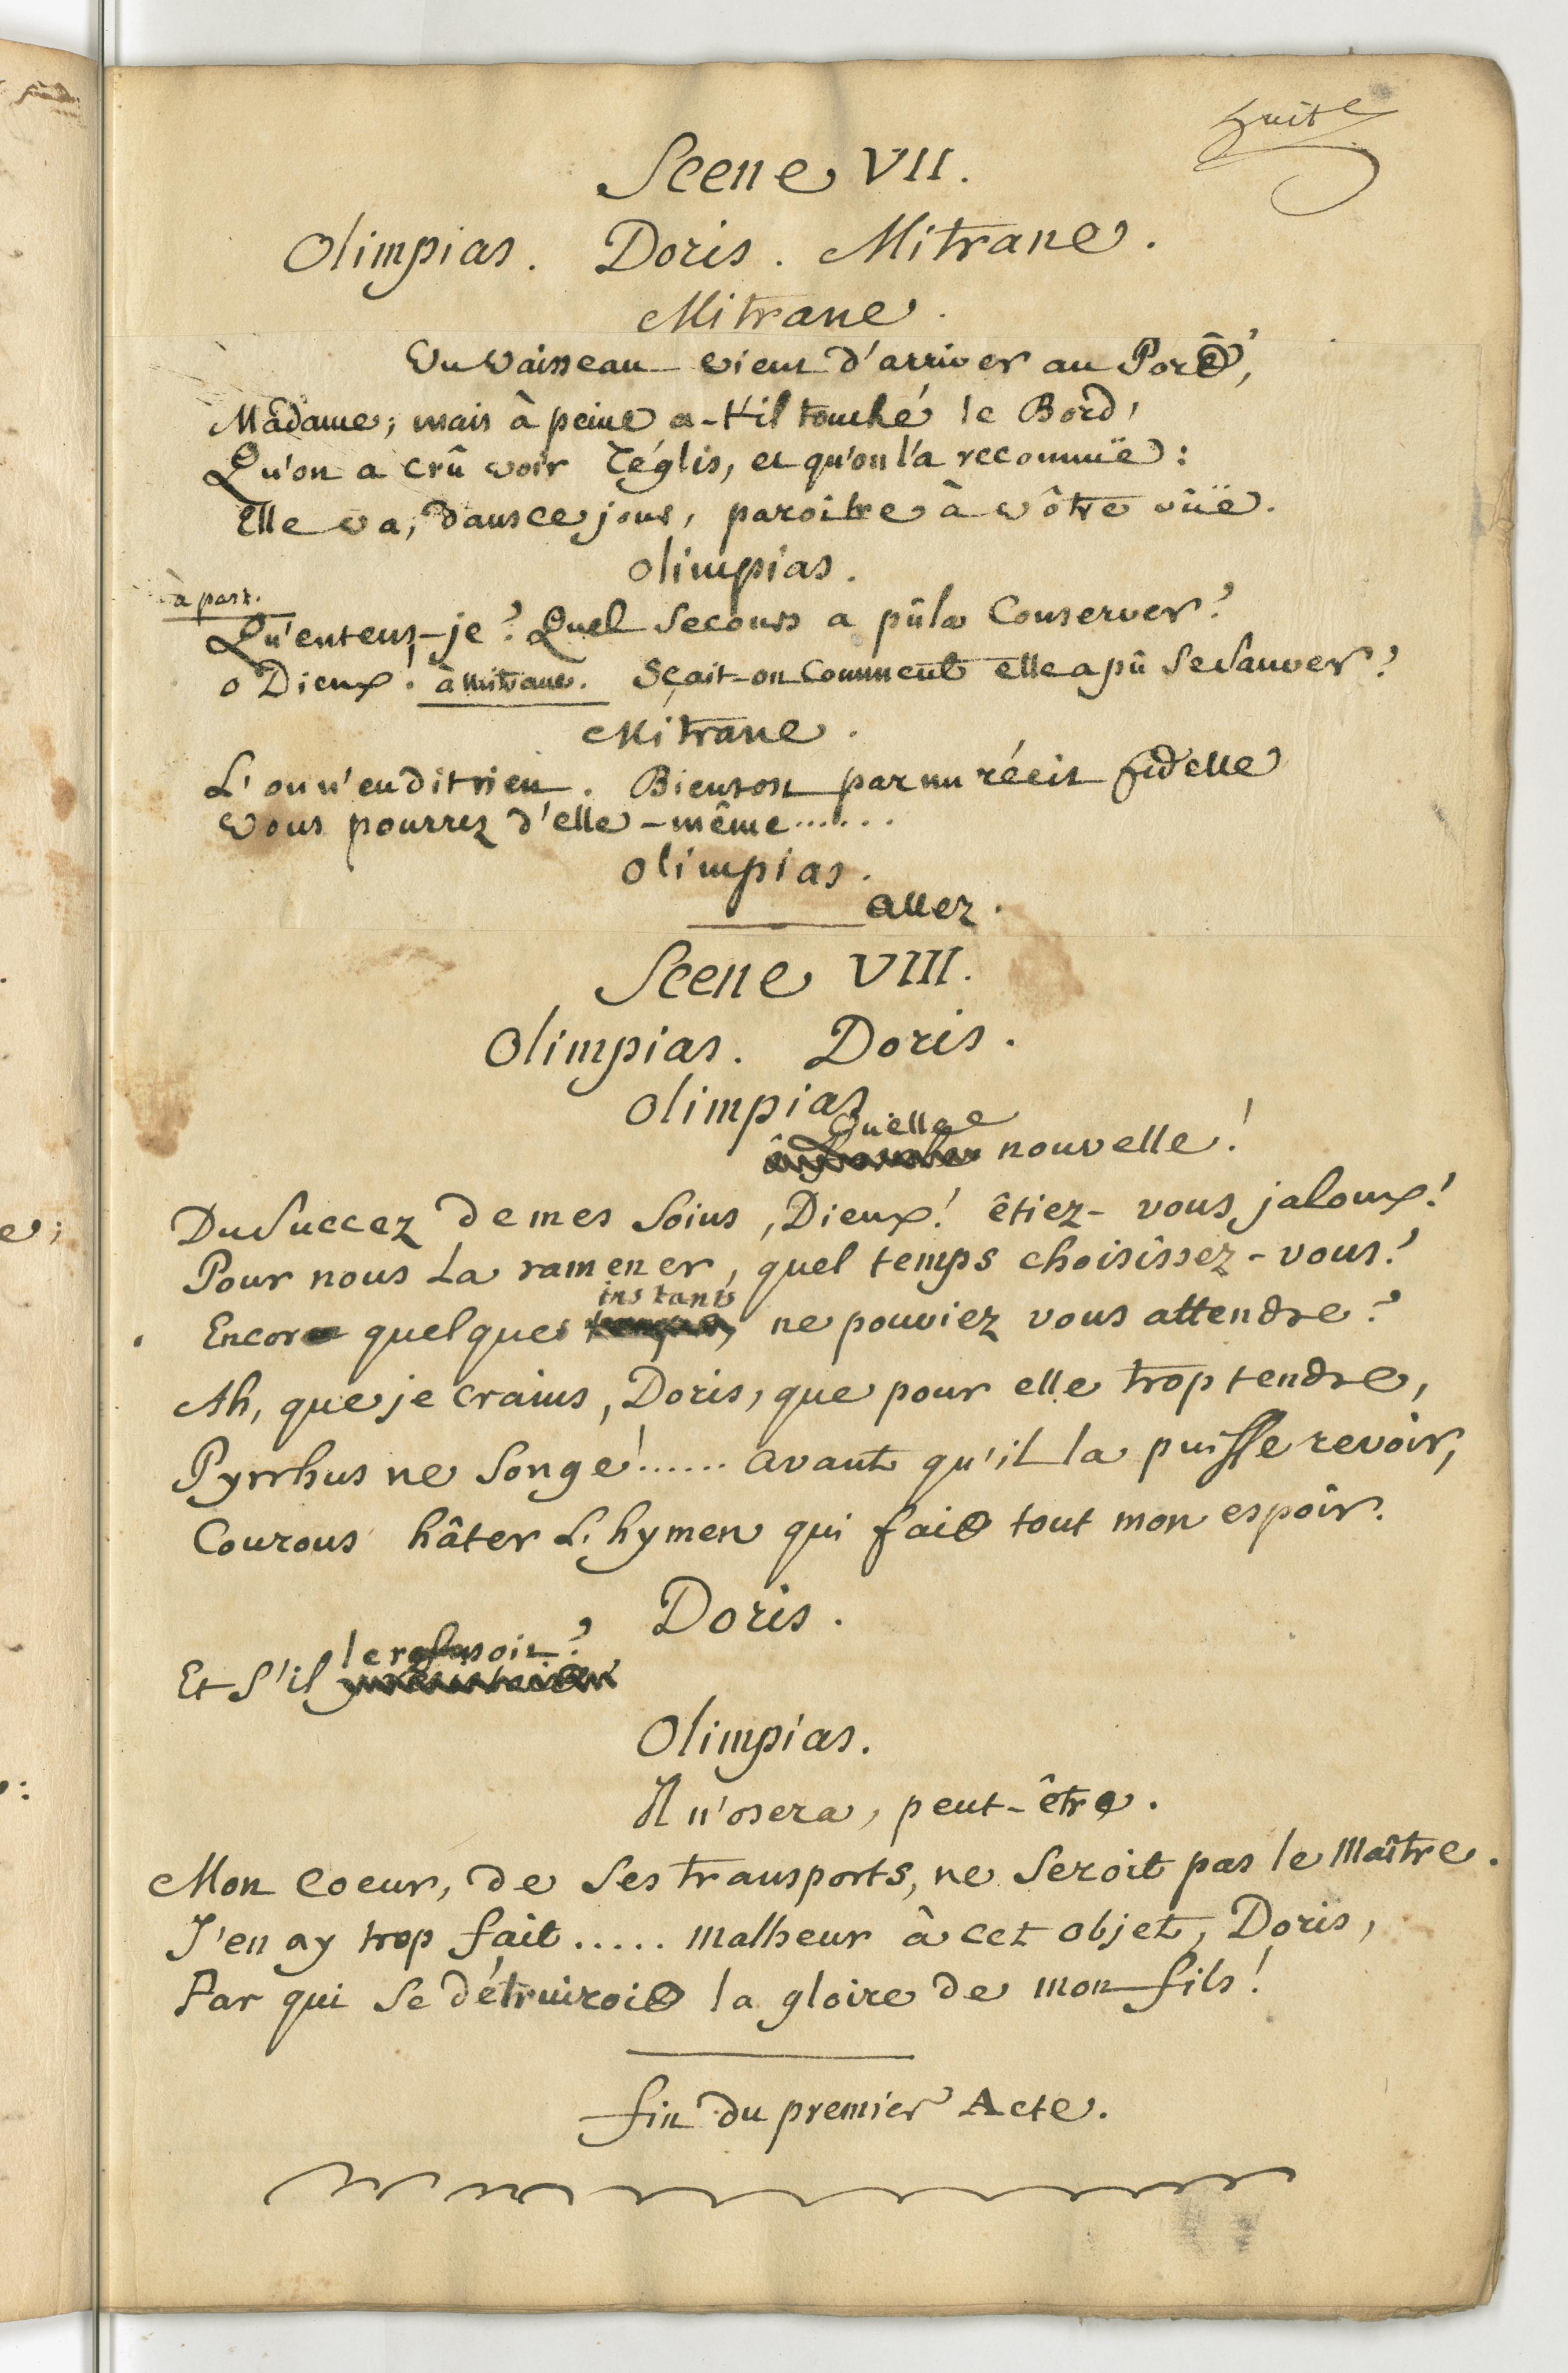 Suite
Scene VII.
Olimpias. Doris. Mitrane.
Mitrane.
Un vaisseau vient d'arriver au Port,
Madame; mais à peine a-t'il touché le Bord,
Qu'on a crû voir Téglis, et qu'on l'a reconnuë:
Elle va, dans ce jour, paroitre à vôtre vûë.
Olimpias.
à part.
Qu'entens-je? Quel Secours a pû la Conserver?
o Dieux! à mitrane. Sçait-on Comment elle a pû Se Sauver?
Mitrane.
L'on n'en dit rien. Bientost par un récit fidelle
Vous pourrez d'elle-même......
Olimpias.
allez.
Scene VIII.
Olimpias. Doris.
Olimpias
Quelle
nouvelle!
Du Succez de mes Soins, Dieux! êtiez-vous jaloux!
Pour nous La ramener, quel temps choisissez-vous?
instants
Encore quelques temps, ne pouviez vous attendre?
Ah, que je crains, Doris, que pour elle trop tendre,
Pyrrhus ne Songe!...... avant qu'il la puisse revoir,
Courons hâter L'hymen qui fait tout mon espoir.
Doris.
le refusoit?
Et S'il
Olimpias.
Il n'osera, peut-être.
Mon Coeur, de Ses transports, ne Seroit pas le Maître.
J'en ay trop fait..... malheur à cet objet, Doris,
Par qui Se détruiroit la gloire de mon fils!
fin du premier Acte.